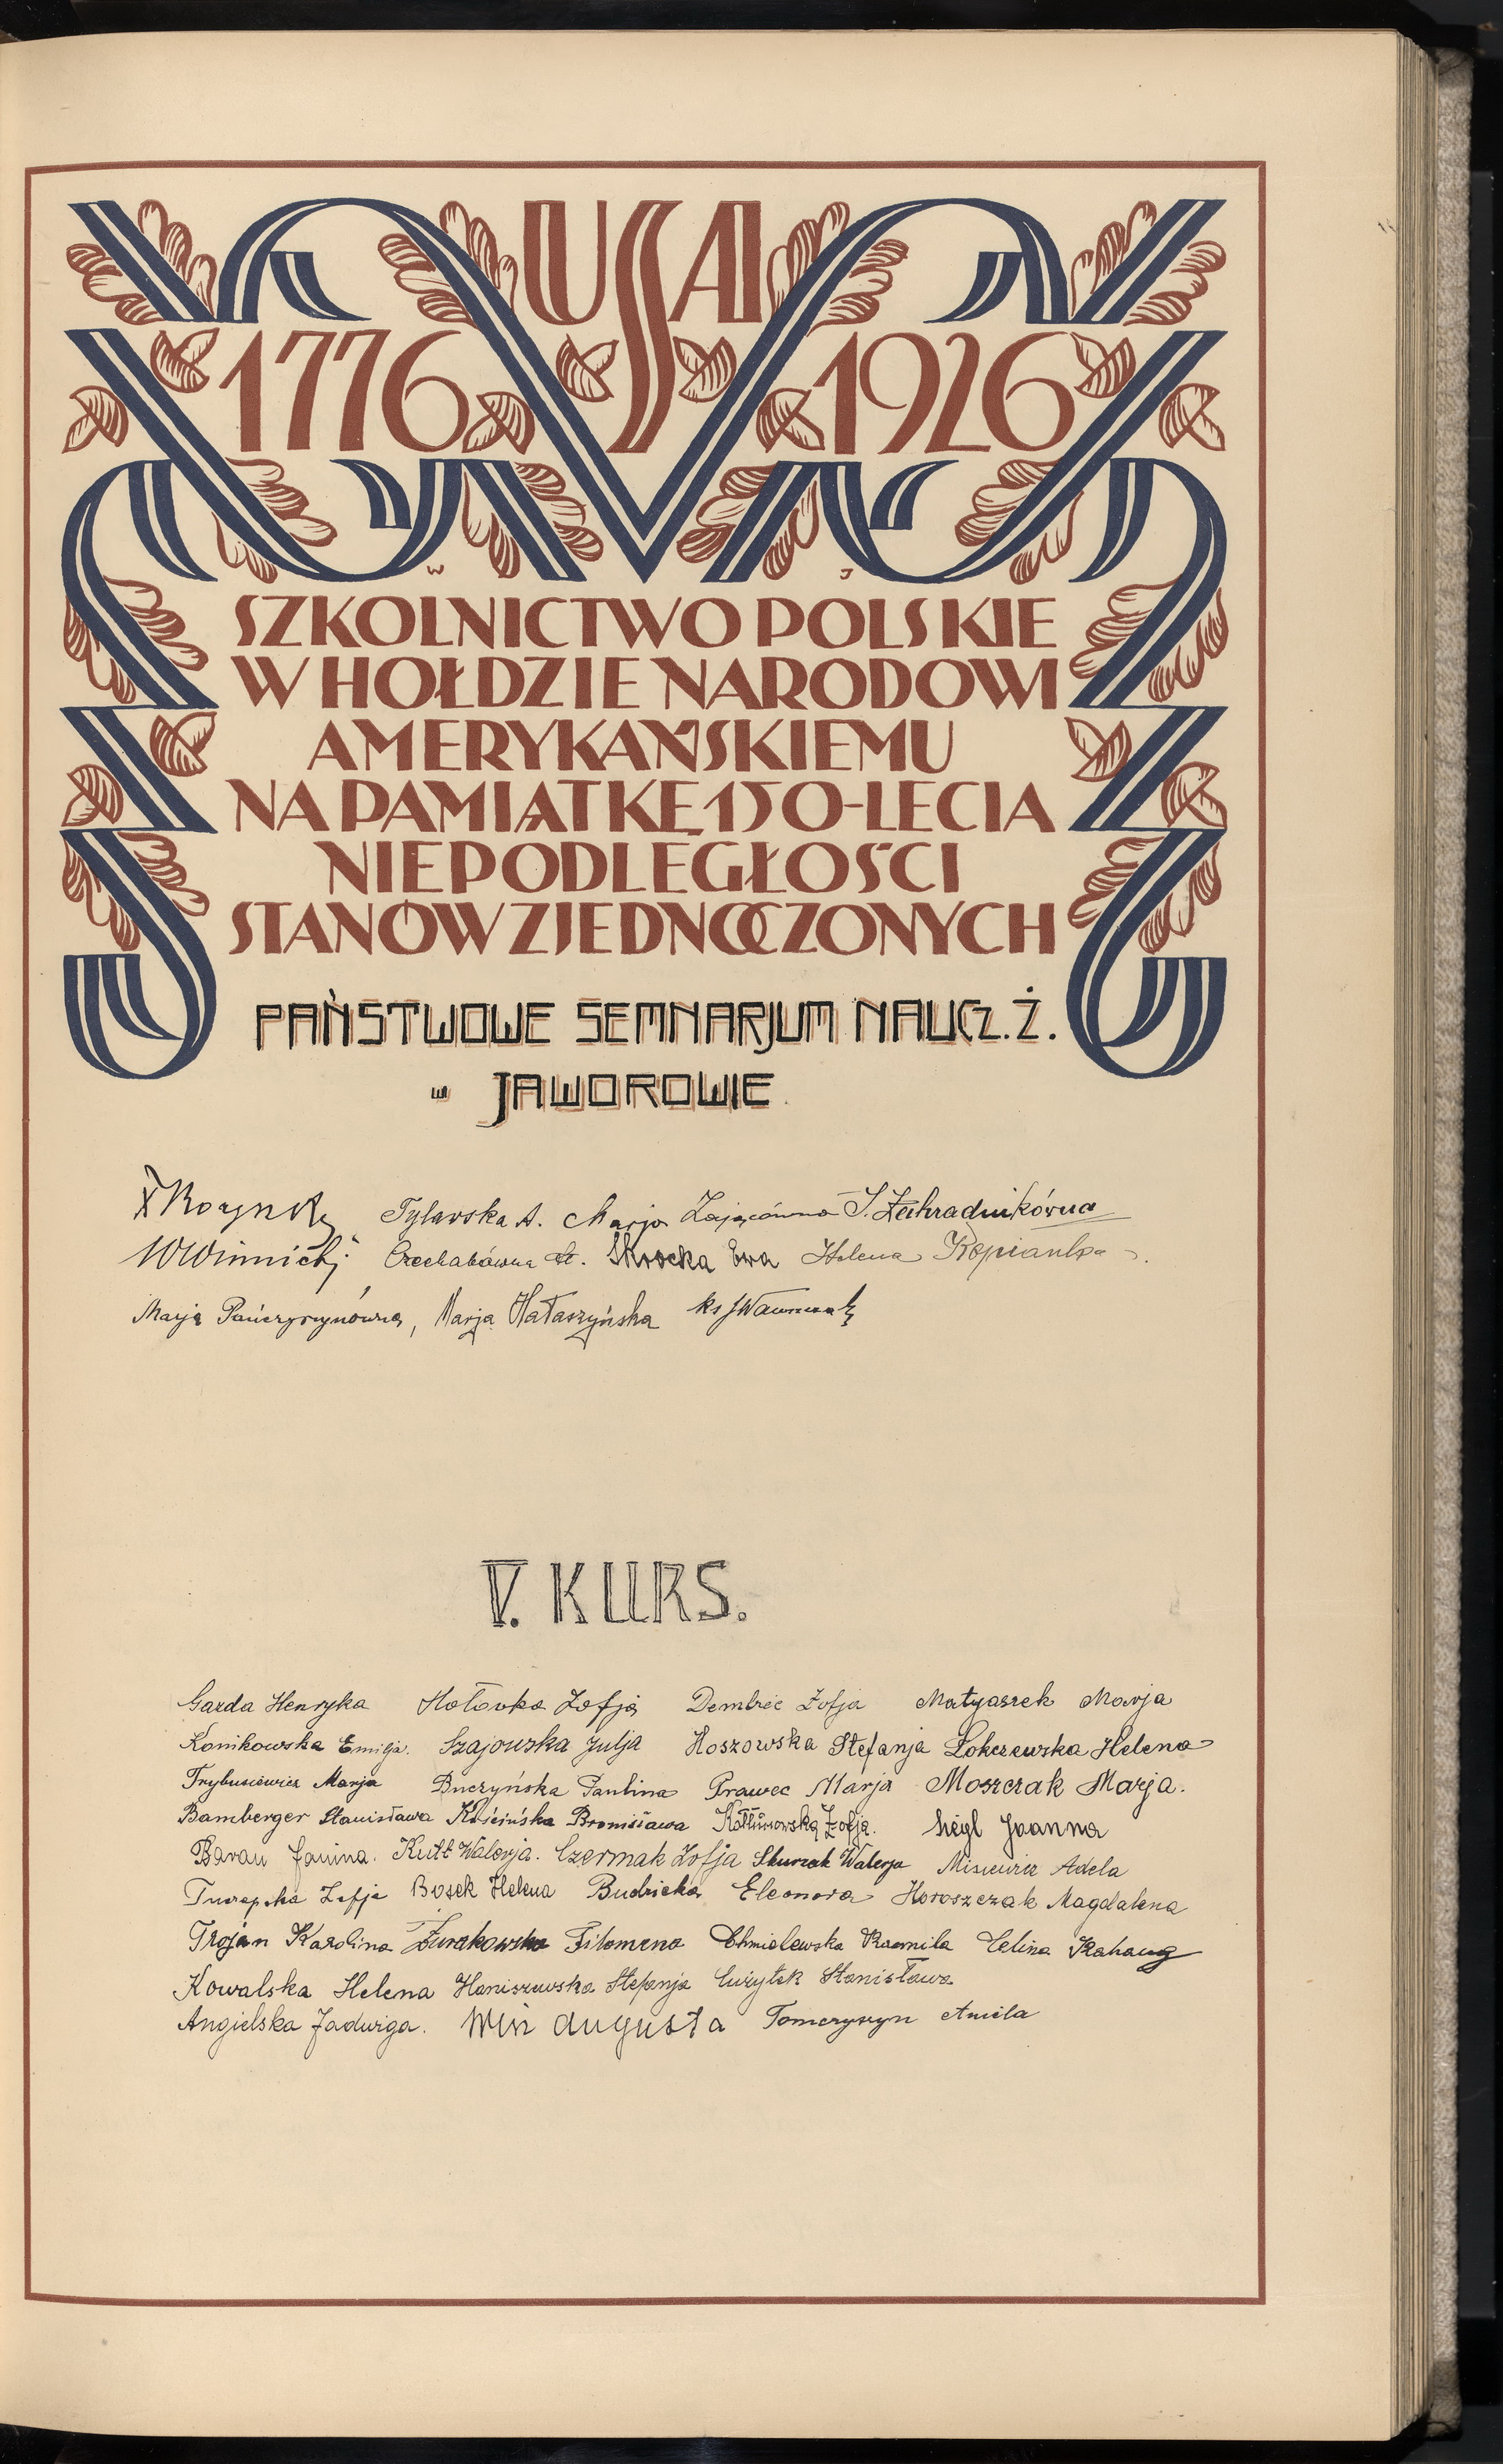 USA
1776 1926
W J
SZKOLNICTWO POLSKIE
W HOŁDZIE NARODOWI
AMERYKAŃSKIEMU
NA PAMIĄTKĘ 150-LECIA
NIEPODLEGŁOŚCI
STANÓW ZJEDNOCZONYCH
PAŃSTWOWE SEMNARJUM NAUCZ. Ż.
w JAWOROWIE.
Tylawska A. Marja Zającówna Zahradnikówna
Skrocka Ewa Helena Kopianka
Marja Pańczyszynówna, Marja Hałaszyńska
V. KURS.
Gazda Henryka Hołowka Zofja Dembiec Zofja Matyaszek Marja
Konikowska Emilja. Szajowska Julja Hoszowska Stefanja Łokczewska Helena
Trybusiewicz Marja Buczyńska Paulina Prawec Marja Moszczak Marja.
Bamberger Stanisława Kościńska Bronisława Kołtunowska Zofja. Siegl Joanna
Baran Janina. Kutt Walerja. Czermak Zofja Skurzak Walerja Misiewicz Adela
Zofja Bosek Helena Budzicka Eleonora Horoszczak Magdalena
Trojan Karolina Żurakowska Filomena Chmielewska Kamila Celina
Kowalska Helena Haniszewska Stefanja Cużytek Stanisława
Angielska Jadwiga. Win Augusta Tomczyszyn Aniela